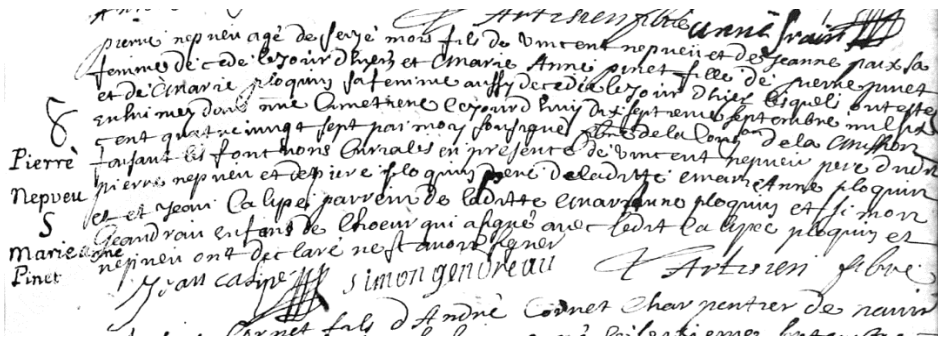 Artisien ptbre anne frain
pierre nepveu agé de seize mois fils de vincent nepveu et de jeanne paix sa
femme decedé le jour d'hier et marie Anne pinet fille de pierre pinet
et de marie ploquin sa femme aussy decedée le jour d'hier lesquels ont esté
enhumez dans nre cimetiere le jour d'huy dix septieme septembre mil six
cent quatre vingt sept par moy soubsigné ptre de la cong.aon de la mission
faisant les fonctions curiales en presence de vincent nepveu pere dudit
pierre nepveu et de pierre ploquin pere de laditte marie Anne ploquin
et et jean Calipe parrein de laditte marianne ploquin et simon
Geandrau enfans de choeur qui a signé avec ledit Calipe ploquin et
nepveu ont declaré ne sçavoir signer
S
Pierre
Nepveu
S
Marie anne
Pinet
Jean Calipe simon gendreau Artisien ptbre
Cornet fils d'André Cornet charpentier de navir